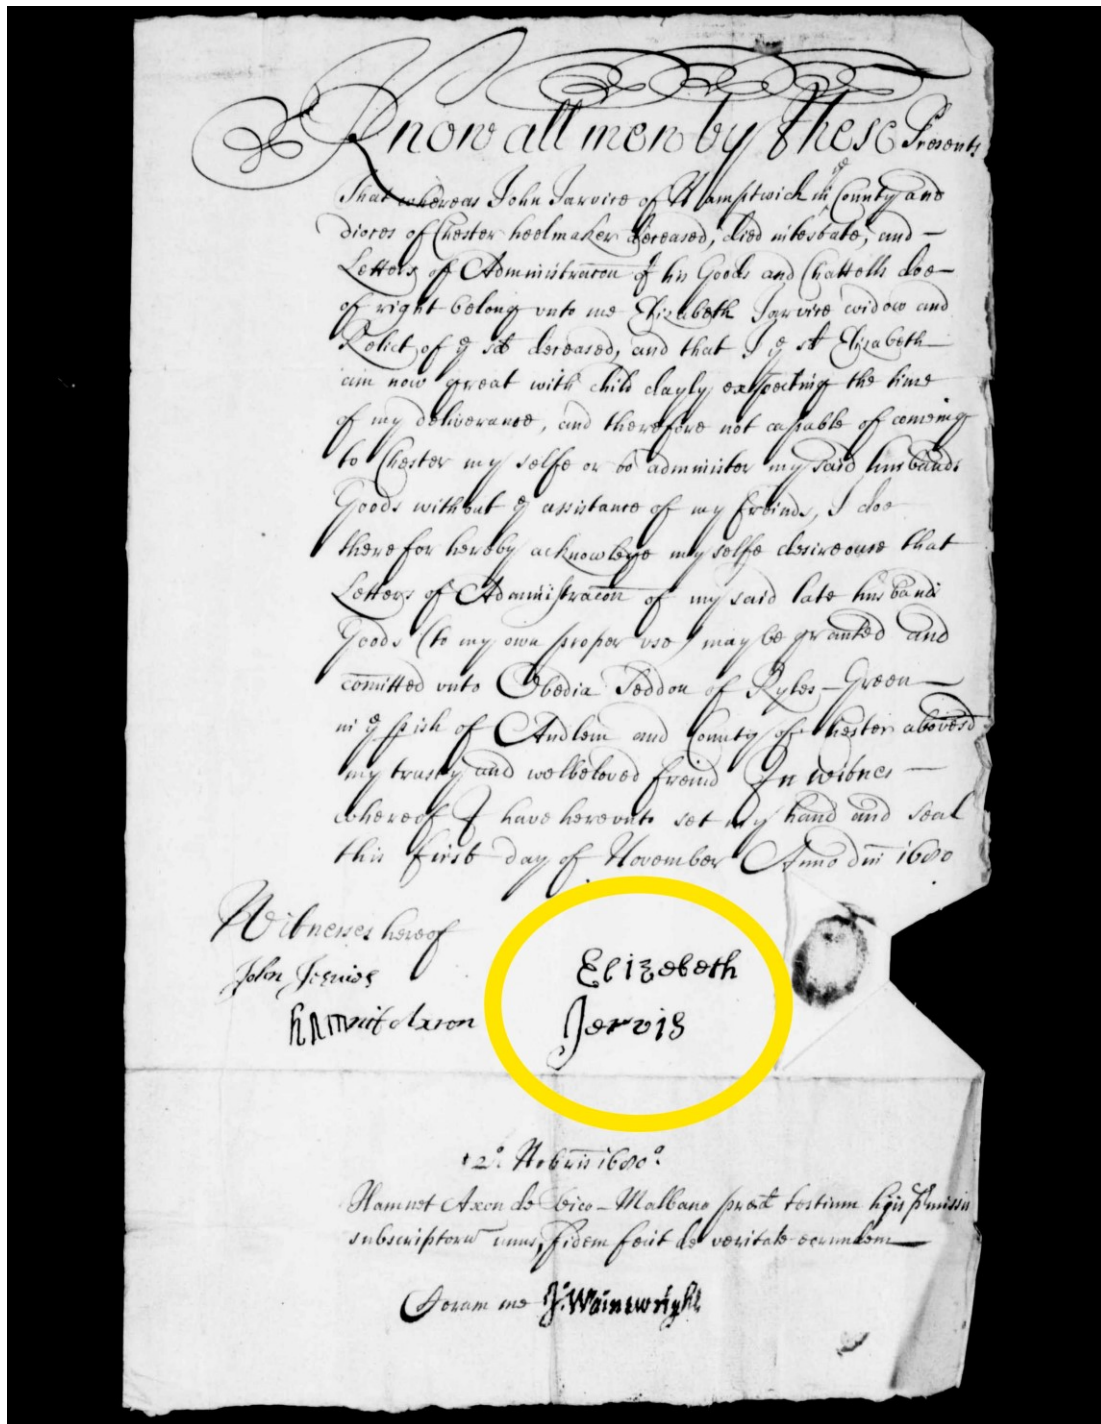 Know all men by these Presents
That whereas John Jarvice of Namptwich in ye County and
dioces of Chester heelmaker deceased, died intestate, and
Letters of Administracon of his Goods and Chattells doe
of right belong vnto me Elizabeth Jarvice widow and
Relict of ye sd deceased, and that I ye sd Elizabeth
am now great with child dayly expecting the time
of my deliverance, and therefore not capable of comeing
to Chester my selfe or to administer my said husbands
Goods without ye assistance of my freinds, I doe
therefor hereby acknowledge my selfe desireouse that
Letters of Administracon of my said late husbands
Goods (to my own proper vse) may be granted and
comitted vnto Obedia Seddon of Ryles-Green
in ye pish of Audlem and County of Chester abovesd
my trusty and welbeloved freind In witnes
whereof I have herevnto set my hand and seal
this first day of November Anno dni 1680
Witnesses hereof
John
Hamnit Axon
Elizebeth
Jervis
2o. Nobris 1680o.
Hamnet Axon de Vico-Malbano prd testium hijs pmissis
subscriptoru unus, fidem fecit de veritate eorundem
Coram me J: Wainewright